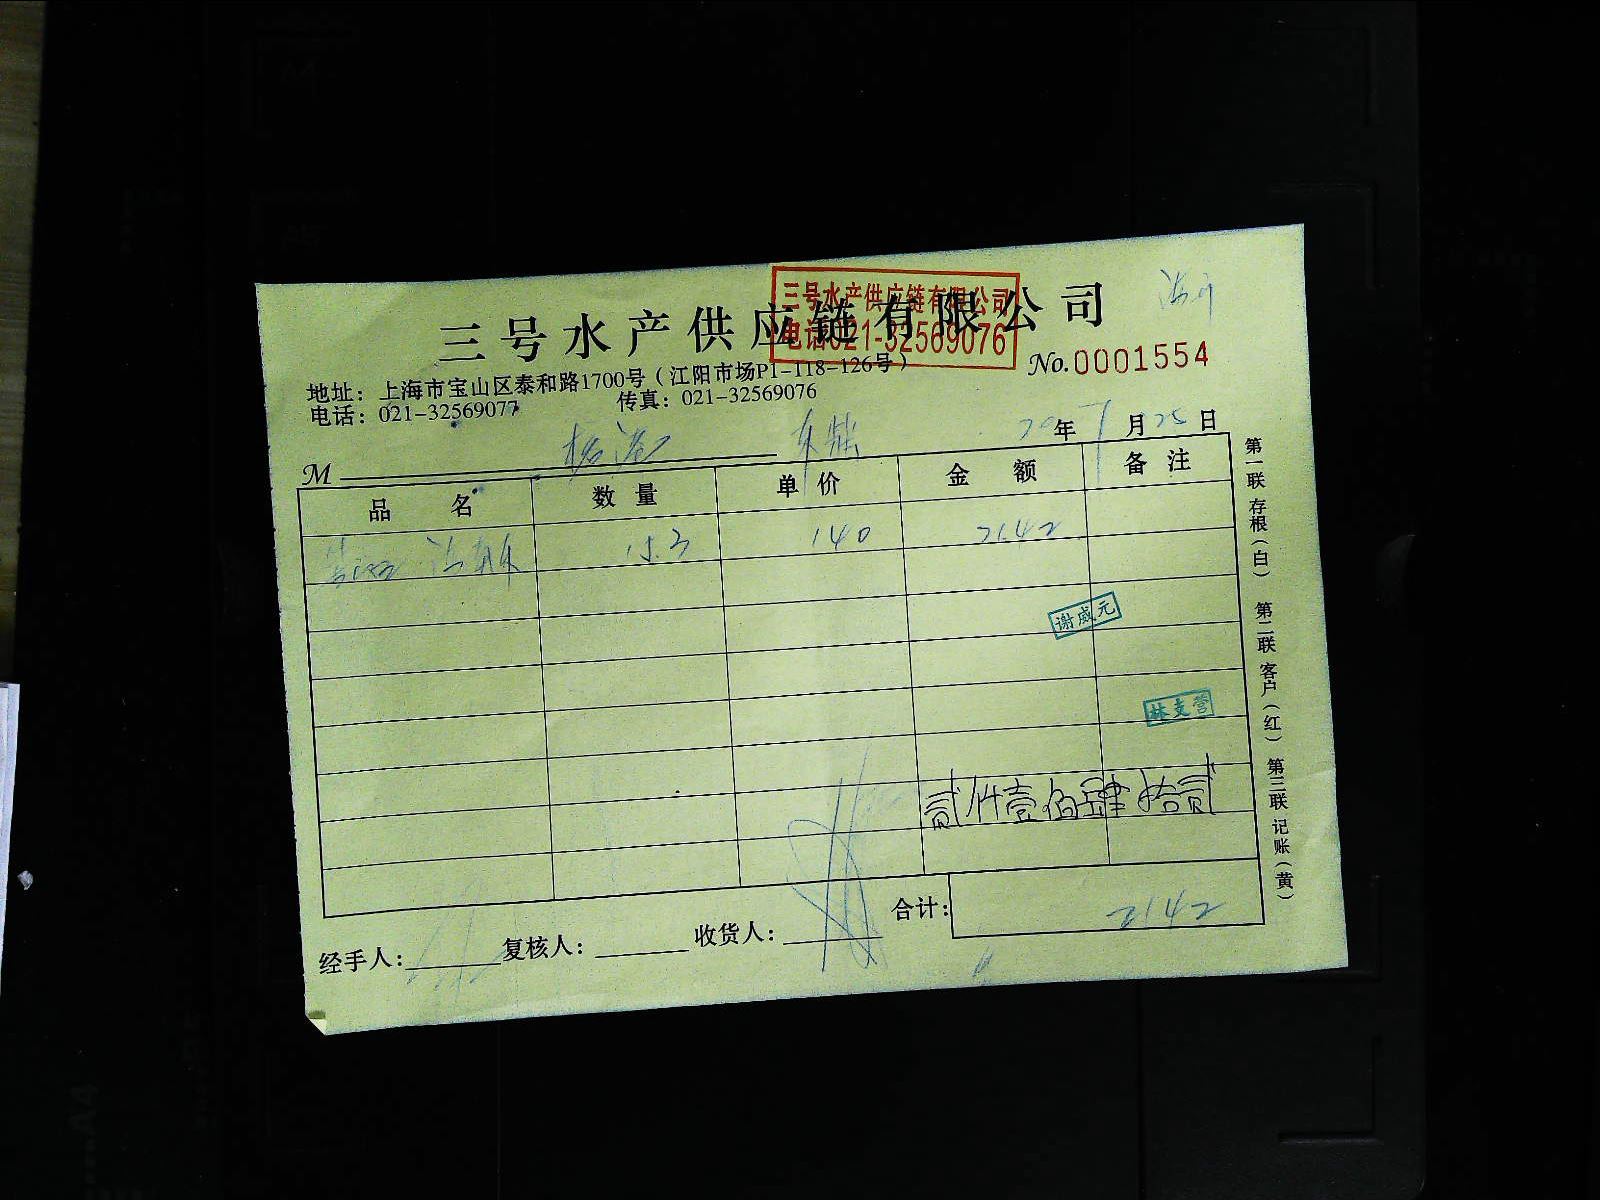 三号水产供应链有限公司
三号水产供应链有限公司
电话021-32569076
地址：上海市宝山区泰和路1700号（江阳市场P1-118-126号）
No.0001554
电话：021-32569077 传真：021-32569076
M
20年7月25日
品名 数量 单价 金额 备注
15.3 140 2142
谢威元
林支营
贰仟壹佰肆拾贰
合计：2142
经手人： 复核人： 收货人：
第一联 存根（白） 第二联 客户（红） 第三联 记账（黄）